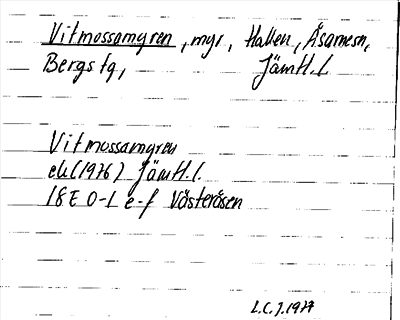 Vitmossamyren, myr, Hallen, Åsarnesn,
Bergs tg, Jämtl.l
Vitmossamyren
ek (1976) Jämtl.l.
18E 0-1 e-f Västeråsen
L.C.J. 1977